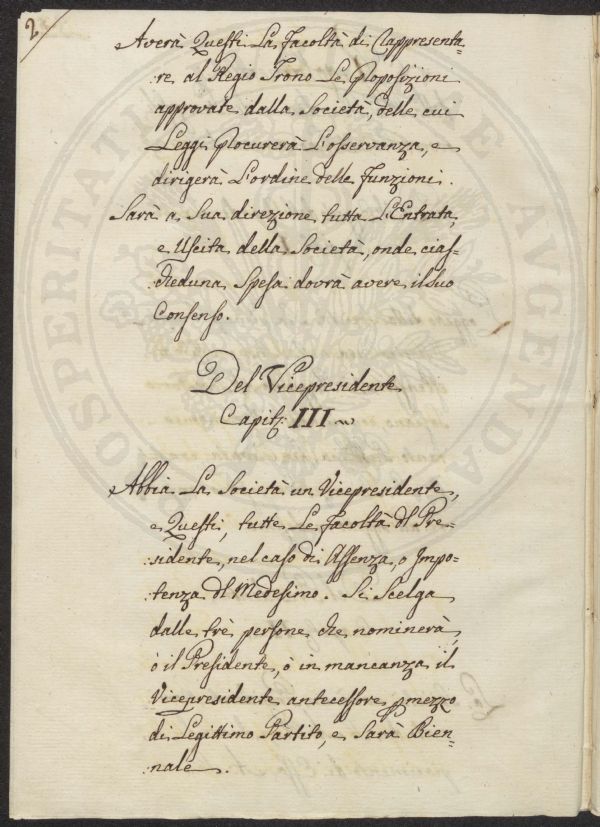 2
Averà Questi La Facoltà di Rappresenta=
:re al Regio Trono Le Proposizioni
approvate dalla Società, delle cui
Leggi procurerà L'osservanza, e
dirigerà L'ordine delle Funzioni.
Sarà a Sua direzione tutta L'Entrata,
e Uscita della Società, onde cias=
:cheduna Spesa dovrà avere il suo
Consenso.
Del Vicepresidente
Capit: III
Abbia La Società un Vicepresidente,
e Questi, tutte Le Facoltà dl Pre=
:sidente, nel caso di Assenza, o Impo=
:tenza dl Medesimo. Si Scelga
dalle trè persone che nominerà,
ò il Presidente, ò in mancanza il
Vicepresidente antecessore pmezzo
di Legittimo Partito, e Sarà Bien=
:nale.
PROSPERITATI PUBLICAE AVGENDAE